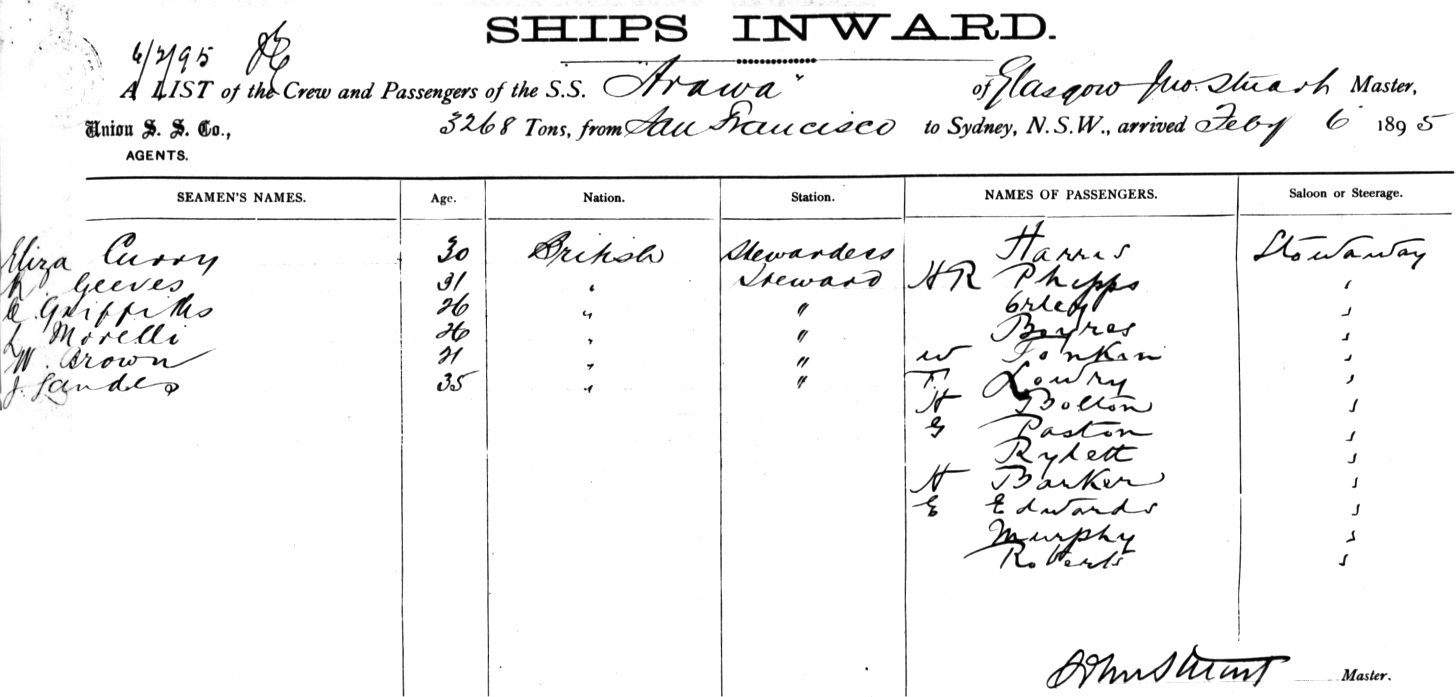 SHIPS INWARD.
6/2/95
A LIST of the Crew and Passengers of the S.S. "Arawa" of Glasgow Jno. Stuart Master,
Union S. S. Co., 3268 Tons, from San Francisco to Sydney, N.S.W., arrived Feby 6 1895
AGENTS.
SEAMEN'S NAMES. Age. Nation. Station. NAMES OF PASSENGERS. Saloon or Steerage.
Eliza Curry 30 British Stewardess Harris Stowaway
Geeves 31 " Steward H R Phipps "
Griffiths 26 " " Orley "
L Morelli 26 " " Boyres "
W. Brown 21 " " W Tonkin "
J. Landes 35 " " F Lowry "
H Bolton "
G Paston "
Rylett "
H Barker "
E Edwards "
Murphy "
Roberts "
John Stuart Master.